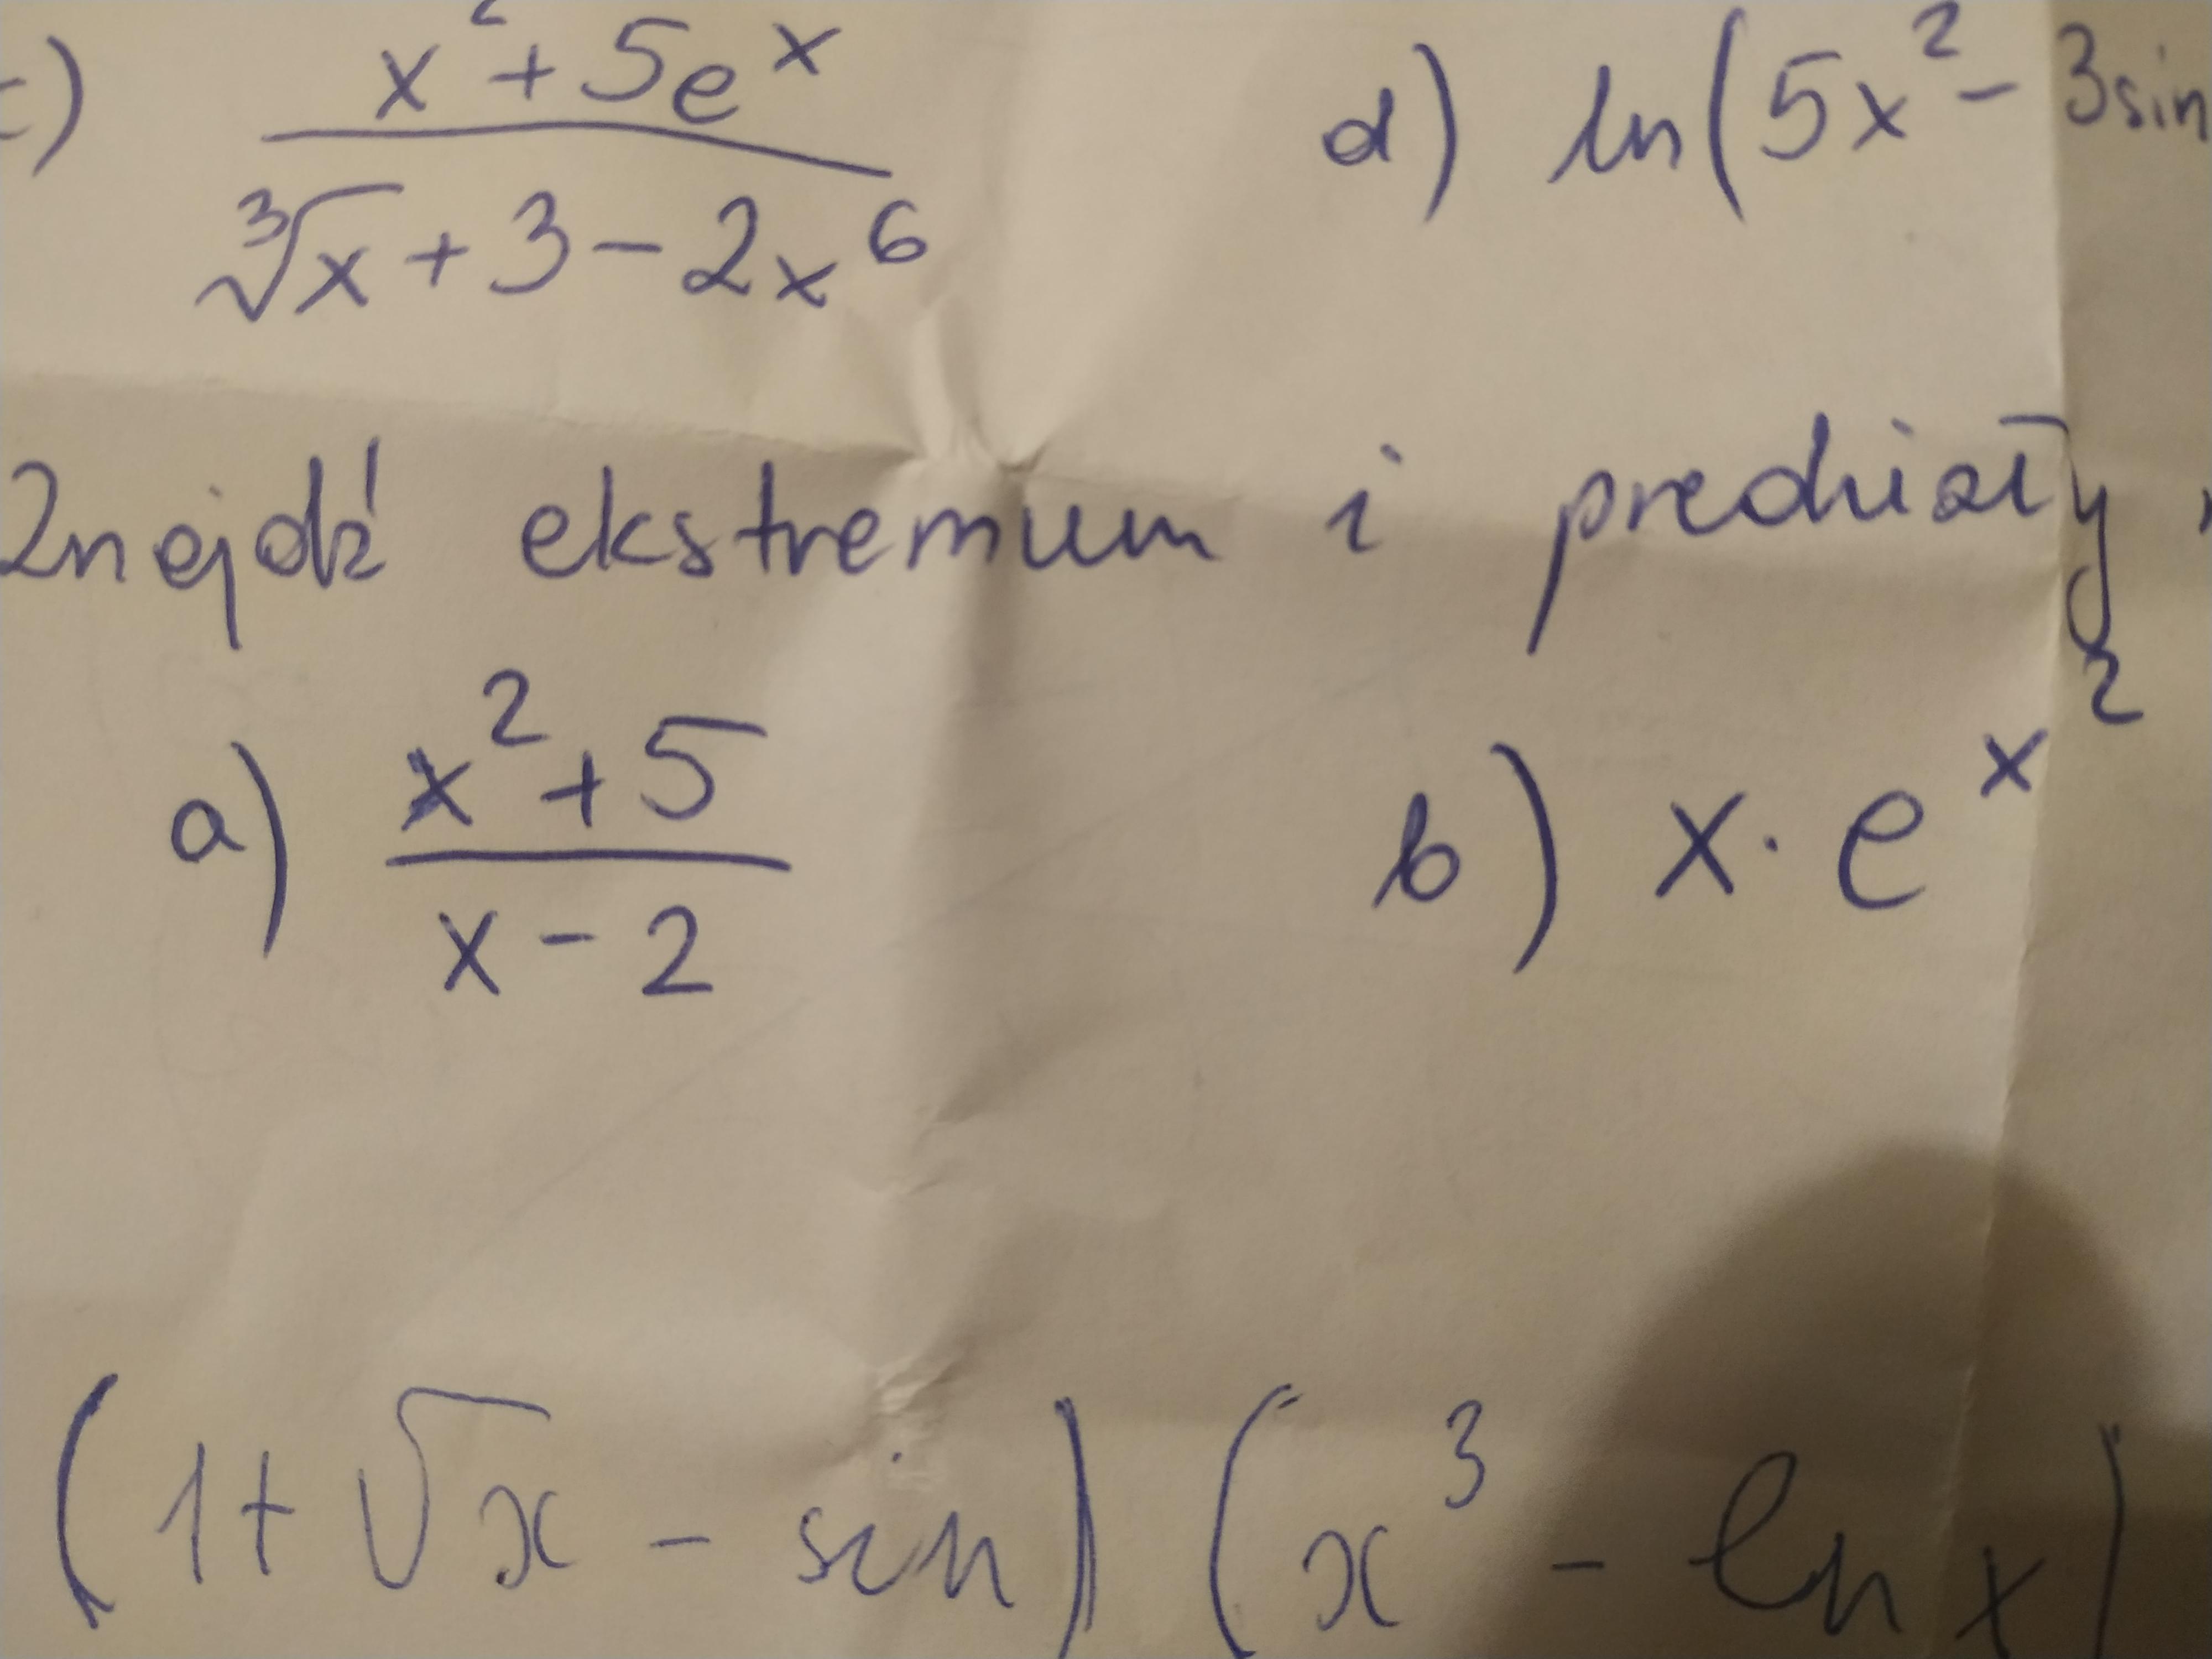 c) x² + 5eˣ / ∛x + 3 - 2x⁶
d) ln(5x² - 3sin
Znajdź ekstremum i przedziały
a) x² + 5 / x - 2
b) x · e^x²
(1 + √x - sin) (x³ - ln x)